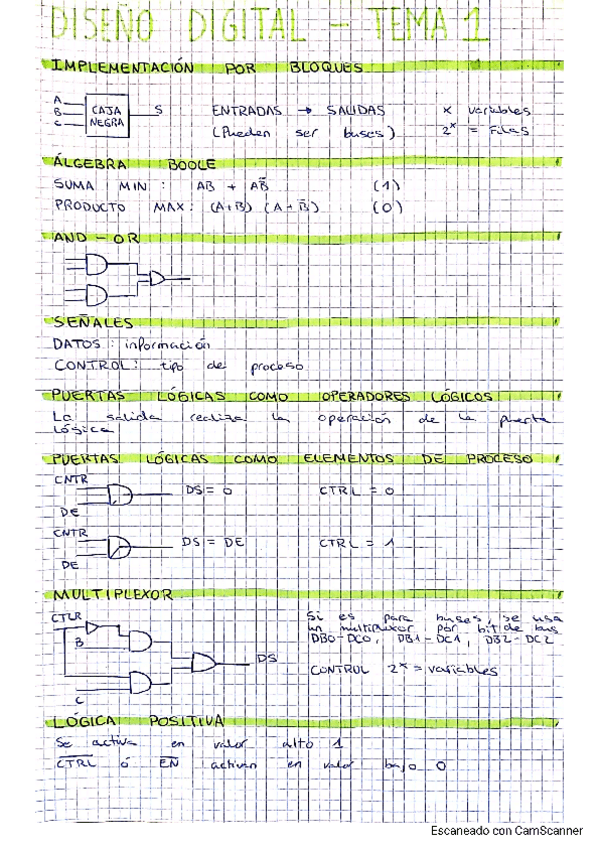 DISEÑO DIGITAL - TEMA 1
IMPLEMENTACIÓN POR BLOQUES
A
B
C
CAJA
NEGRA
S
ENTRADAS → SALIDAS
(Pueden ser buses)
x variables
2^x = Filas
ÁLGEBRA BOOLE
SUMA MIN: AB + AB̄ (1)
PRODUCTO MAX: (A+B) (A+B̄) (0)
AND-OR
SEÑALES
DATOS: información
CONTROL: tipo de proceso
PUERTAS LÓGICAS COMO OPERADORES LÓGICOS
La salida realiza la operación de la puerta
lógica
PUERTAS LÓGICAS COMO ELEMENTOS DE PROCESO
CNTR
DE
DS = 0 CTRL = 0
CNTR
DE
DS = DE CTRL = 1
MULTIPLEXOR
CTLR
B
C
DS
Si es para buses, se usa
un multiplexor por bit de bus
DB0-DC0, DB1-DC1, DB2-DC2
CONTROL 2^x = variables
LÓGICA POSITIVA
Se activa en valor alto 1
C̅T̅R̅L̅ ó E̅N̅ activan en valor bajo 0
Escaneado con CamScanner